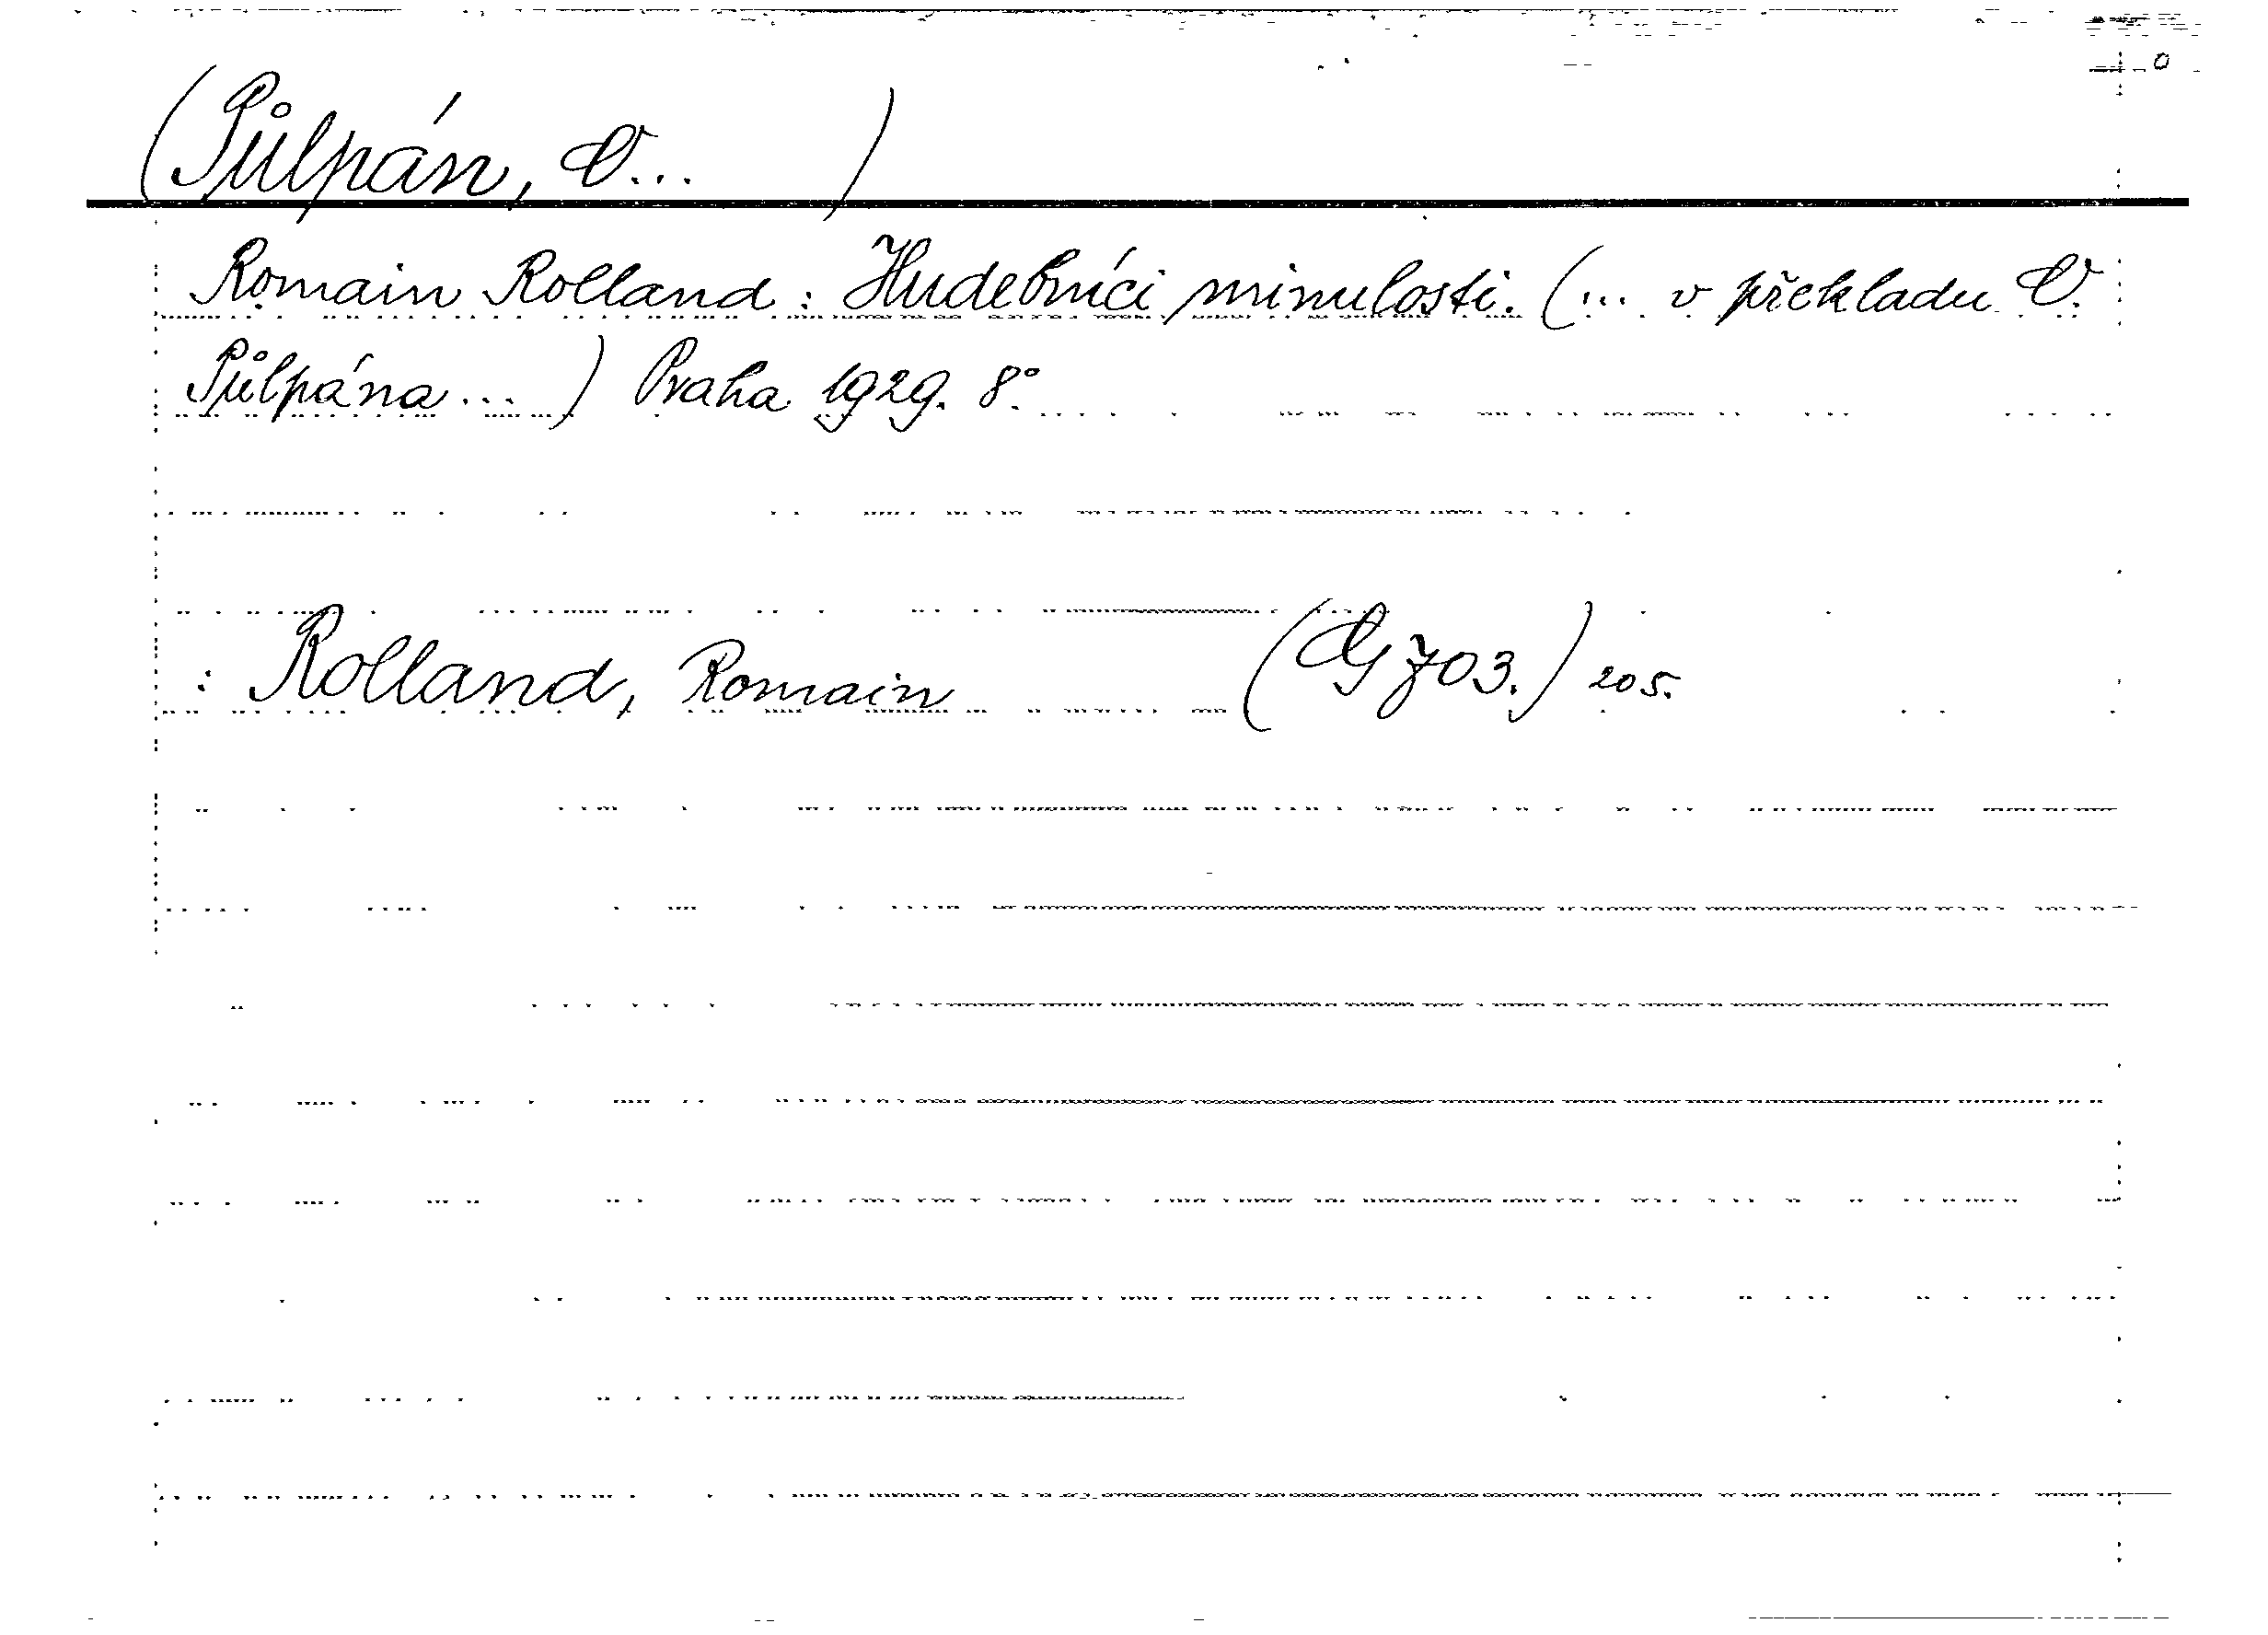 (Půlpán, V... )
Romain Rolland: Hudebníci minulosti. (... v překladu V.
Půlpána...) Praha 1929. 8°.
: Rolland, Romain (G 703.) 205.